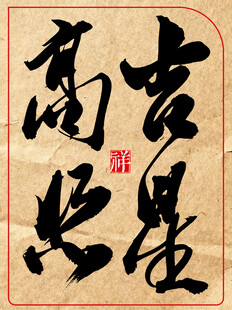 吉星
高照
祥